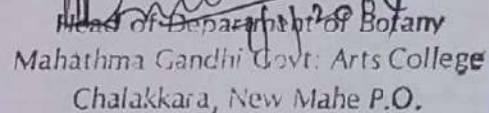 Head of Department of Botany
Mahathma Gandhi Govt: Arts College
Chalakkara, New Mahe P.O.